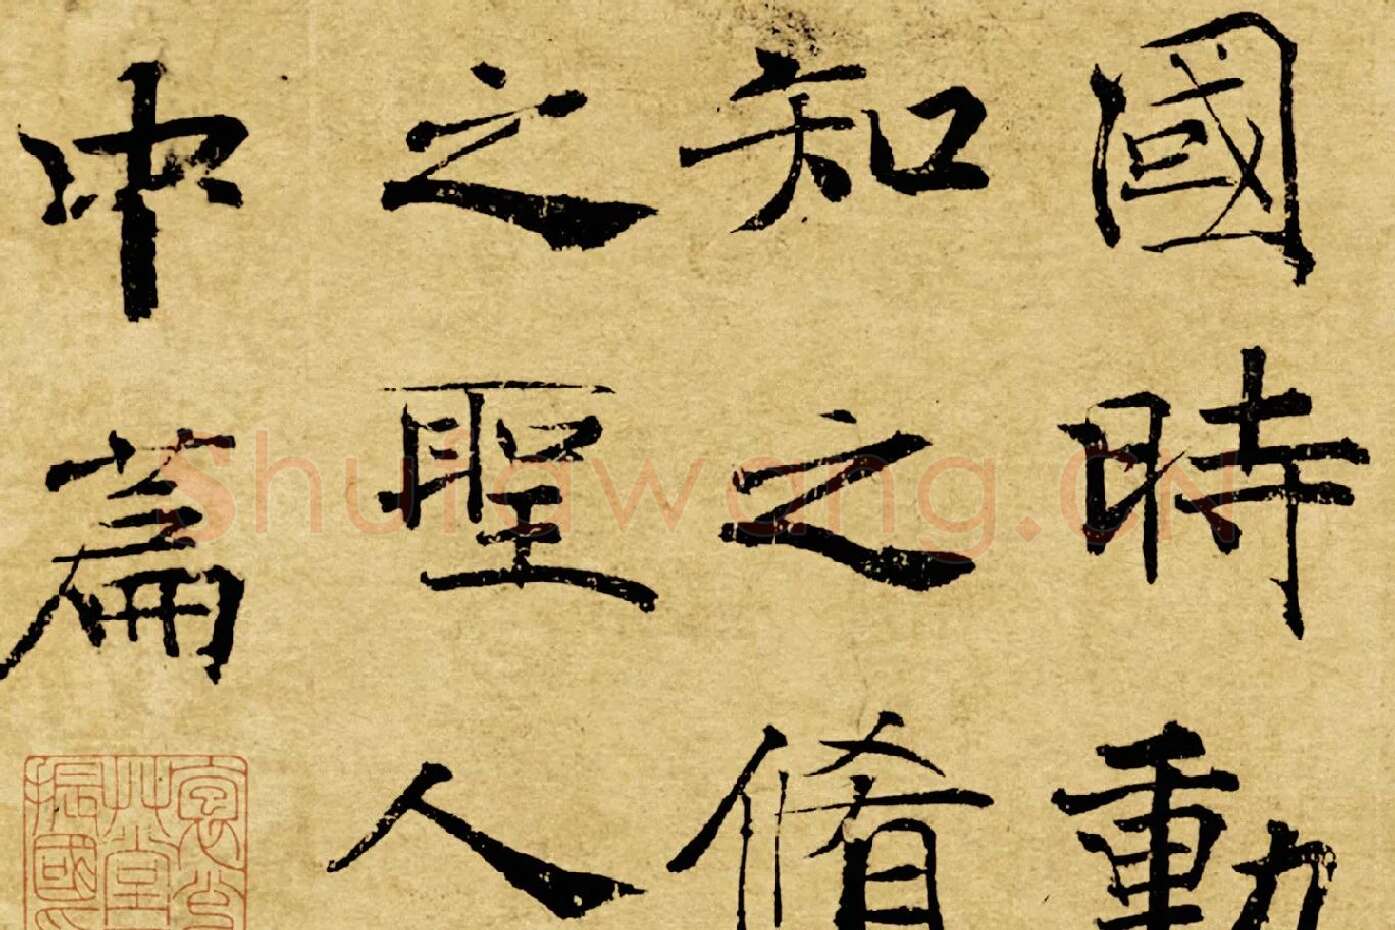 國時動
知之脩
之聖人
中篇
Shufawang.CN